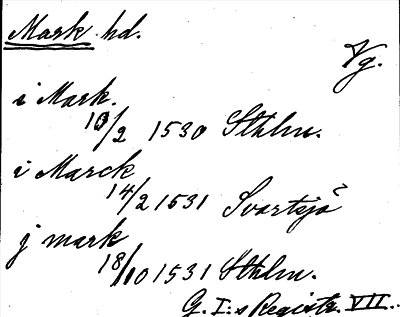 Mark hd.
Vg.
i Mark.
10/2 1530 Sthlm.
i Marck
14/2 1531 Svartsjö
j mark
18/10 1531 Sthlm.
G. I:s Registr. VII.